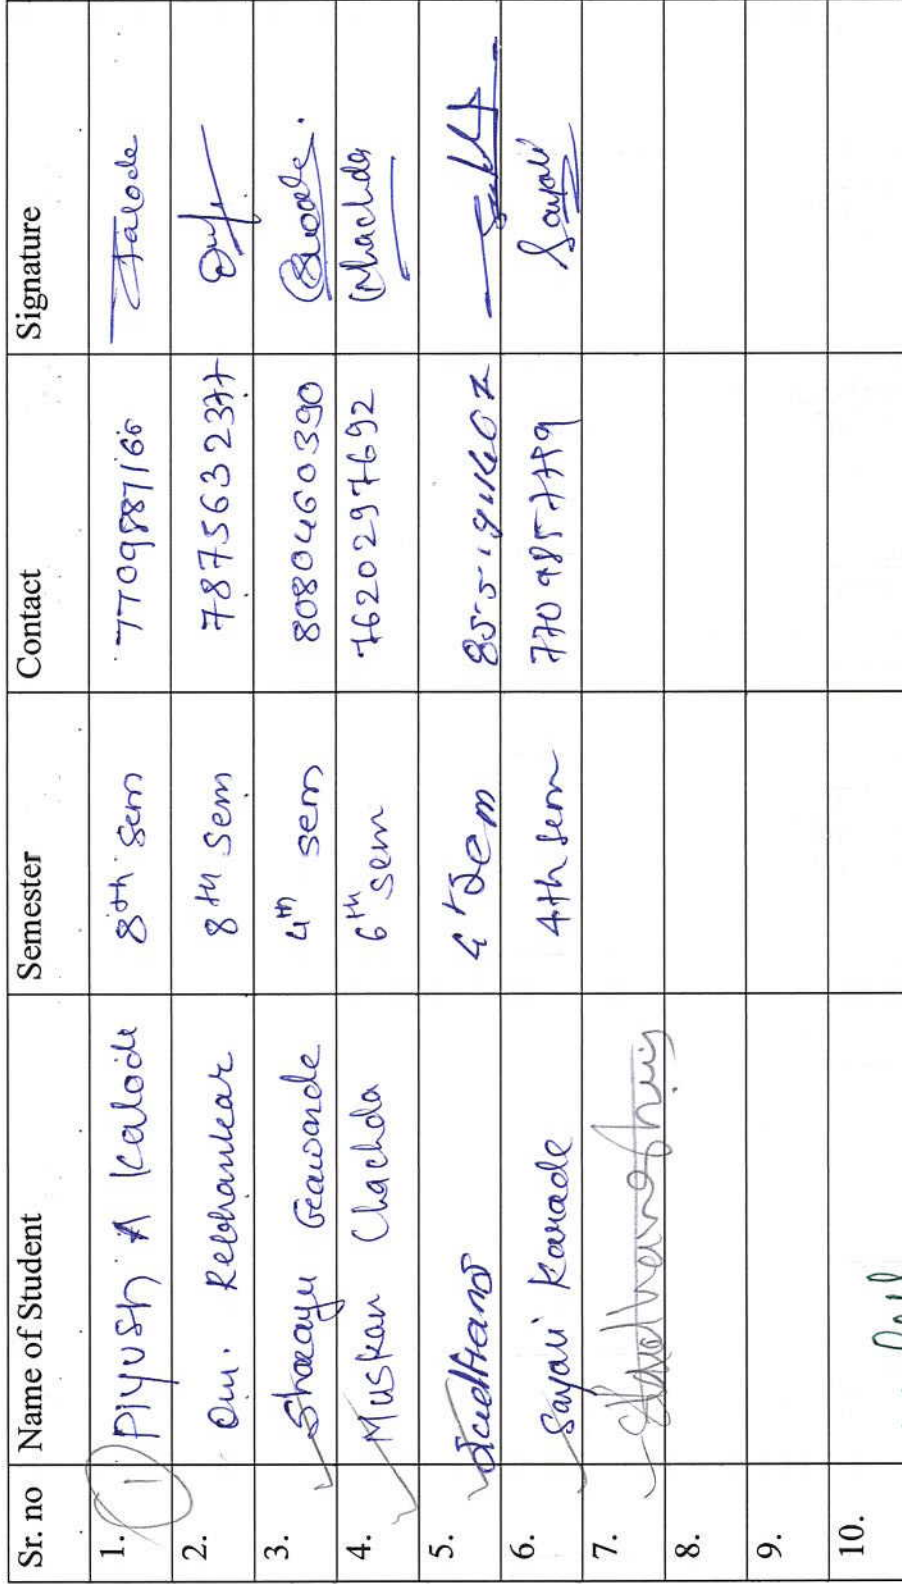 Sr. no Name of Student Semester Contact Signature
1. 1 Piyush A Kalode 8th Sem 7709887166 Kalode
2. Om. Rebhankar 8th Sem 7875632377
3. Sharayu Gawande 4th sem 8080460390
4. Muskan Chachda 6th sem 7620297692 Chachda
5. 4th Sem
6. Sayali Karade 4th sem 7709857779 Sayali
7.
8.
9.
10.